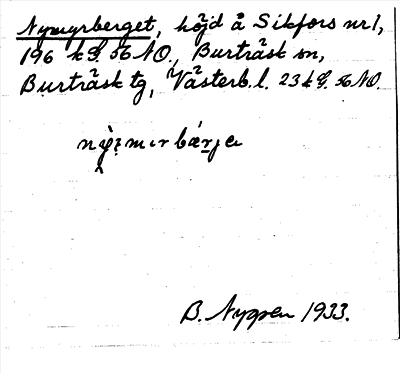 Nymyrberget, höjd å Sikfors nr 1,
196 k 56 NO, Burträsk sn,
Burträsk tg, Västerb. l. 23 k 56 NO.
B. Nygren 1933.